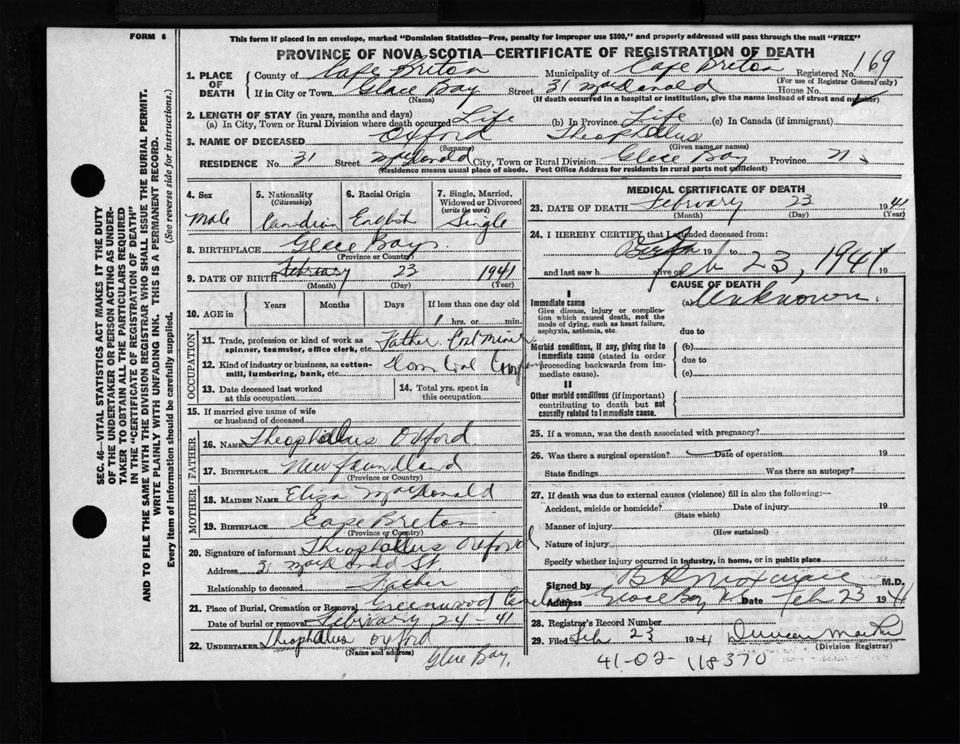 FORM 6
This form if placed in an envelope, marked "Dominion Statistics—Free, penalty for improper use $300," and properly addressed will pass through the mail "FREE"
PROVINCE OF NOVA SCOTIA—CERTIFICATE OF REGISTRATION OF DEATH
SEC. 46—VITAL STATISTICS ACT MAKES IT THE DUTY
OF THE UNDERTAKER OR PERSON ACTING AS UNDER-
TAKER TO OBTAIN ALL THE PARTICULARS REQUIRED
IN THE "CERTIFICATE OF REGISTRATION OF DEATH"
AND TO FILE THE SAME WITH THE DIVISION REGISTRAR WHO SHALL ISSUE THE BURIAL PERMIT.
WRITE PLAINLY WITH UNFADING INK. THIS IS A PERMANENT RECORD.
Every item of information should be carefully supplied. (See reverse side for instructions.)
1. PLACE OF DEATH County of Cape Breton Municipality of Cape Breton Registered No. 169
(For use of Registrar General only)
If in City or Town Glace Bay Street 31 MacDonald House No.
(Name) (If death occurred in a hospital or institution, give the name instead of street and number)
2. LENGTH OF STAY (in years, months and days)
(a) In City, Town or Rural Division where death occurred Life (b) In Province Life (c) In Canada (if immigrant)
3. NAME OF DECEASED Oxford Theophillus
(Surname) (Given name or names)
RESIDENCE No. 31 Street MacDonald City, Town or Rural Division Glace Bay Province N.S.
(Residence means usual place of abode. Post Office Address for residents in rural parts not sufficient)
4. Sex 5. Nationality (Citizenship) 6. Racial Origin 7. Single, Married, Widowed or Divorced (write the word)
Male Canadian English Single
8. BIRTHPLACE Glace Bay
(Province or Country)
9. DATE OF BIRTH February 23 1941
(Month) (Day) (Year)
10. AGE in Years Months Days If less than one day old
1 hrs. or min.
OCCUPATION
11. Trade, profession or kind of work as spinner, teamster, office clerk, etc. Father Coal Miner
12. Kind of industry or business, as cotton-mill, lumbering, bank, etc. Dom Coal Comp
13. Date deceased last worked at this occupation 14. Total yrs. spent in this occupation
15. If married give name of wife or husband of deceased
FATHER
16. NAME Theophillus Oxford
17. BIRTHPLACE Newfoundland
(Province or Country)
MOTHER
18. MAIDEN NAME Eliza MacDonald
19. BIRTHPLACE Cape Breton
(Province or Country)
20. Signature of informant Theophillus Oxford
Address 31 MacDonald St.
Relationship to deceased Father
21. Place of Burial, Cremation or Removal Greenwood
Date of burial or removal February 24-41
22. UNDERTAKER Theophillus Oxford
(Name and address)
Glace Bay.
MEDICAL CERTIFICATE OF DEATH
23. DATE OF DEATH February 23 1941
(Month) (Day) (Year)
24. I HEREBY CERTIFY, that I attended deceased from:
19 to 19
and last saw h alive on Feb 23, 1941 19
CAUSE OF DEATH
I
Immediate cause (a) Unknown.
Give disease, injury or complication which caused death, not the mode of dying, such as heart failure, asphyxia, asthenia, etc.
due to
Morbid conditions, if any, giving rise to immediate cause (stated in order proceeding backwards from immediate cause). (b)
due to
(c)
II
Other morbid conditions (if important) contributing to death but not causally related to immediate cause.
25. If a woman, was the death associated with pregnancy?
26. Was there a surgical operation? Date of operation 19
State findings Was there an autopsy?
27. If death was due to external causes (violence) fill in also the following:—
Accident, suicide or homicide? Date of injury 19
(State which)
Manner of injury
(How sustained)
Nature of injury
Specify whether injury occurred in Industry, in home, or in public place
Signed by M.D.
Address Glace Bay N.S. Date Feb 23 1941
28. Registrar's Record Number
29. Filed Feb 23 1941 Duncan
(Division Registrar)
41-02-118370